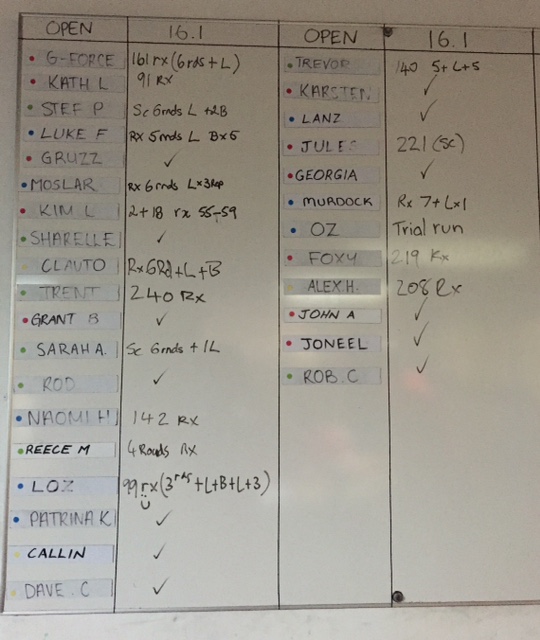 OPEN 16.1
G-FORCE 161 rx (6rds + L)
KATH L 91 Rx
STEF P Sc 6rnds L +2B
LUKE F Rx 5rnds L Bx5
GRUZZ ✓
MOSLAR Rx 6rnds Lx3Rep
KIM L 2+18 rx 55-59
SHARELLE ✓
CLAUTO Rx 6Rd+L+B
TRENT 240 Rx
GRANT B ✓
SARAH A. Sc 6rnds + 1L
ROD ✓
NAOMI H 142 RX
REECE M 4 Rounds Rx
LOZ 99 rx (3rds +L+B+L+3)
PATRINA K ✓
CALLIN ✓
DAVE . C ✓
OPEN 16.1
TREVOR 140 5+L+5
KARSTEN ✓
LANZ ✓
JULES 221 (Sc)
GEORGIA ✓
MURDOCK Rx 7+Lx1
OZ Trial run
FOXY 219 Rx
ALEX H. 208 Rx
JOHN A ✓
JONEEL ✓
ROB. C ✓